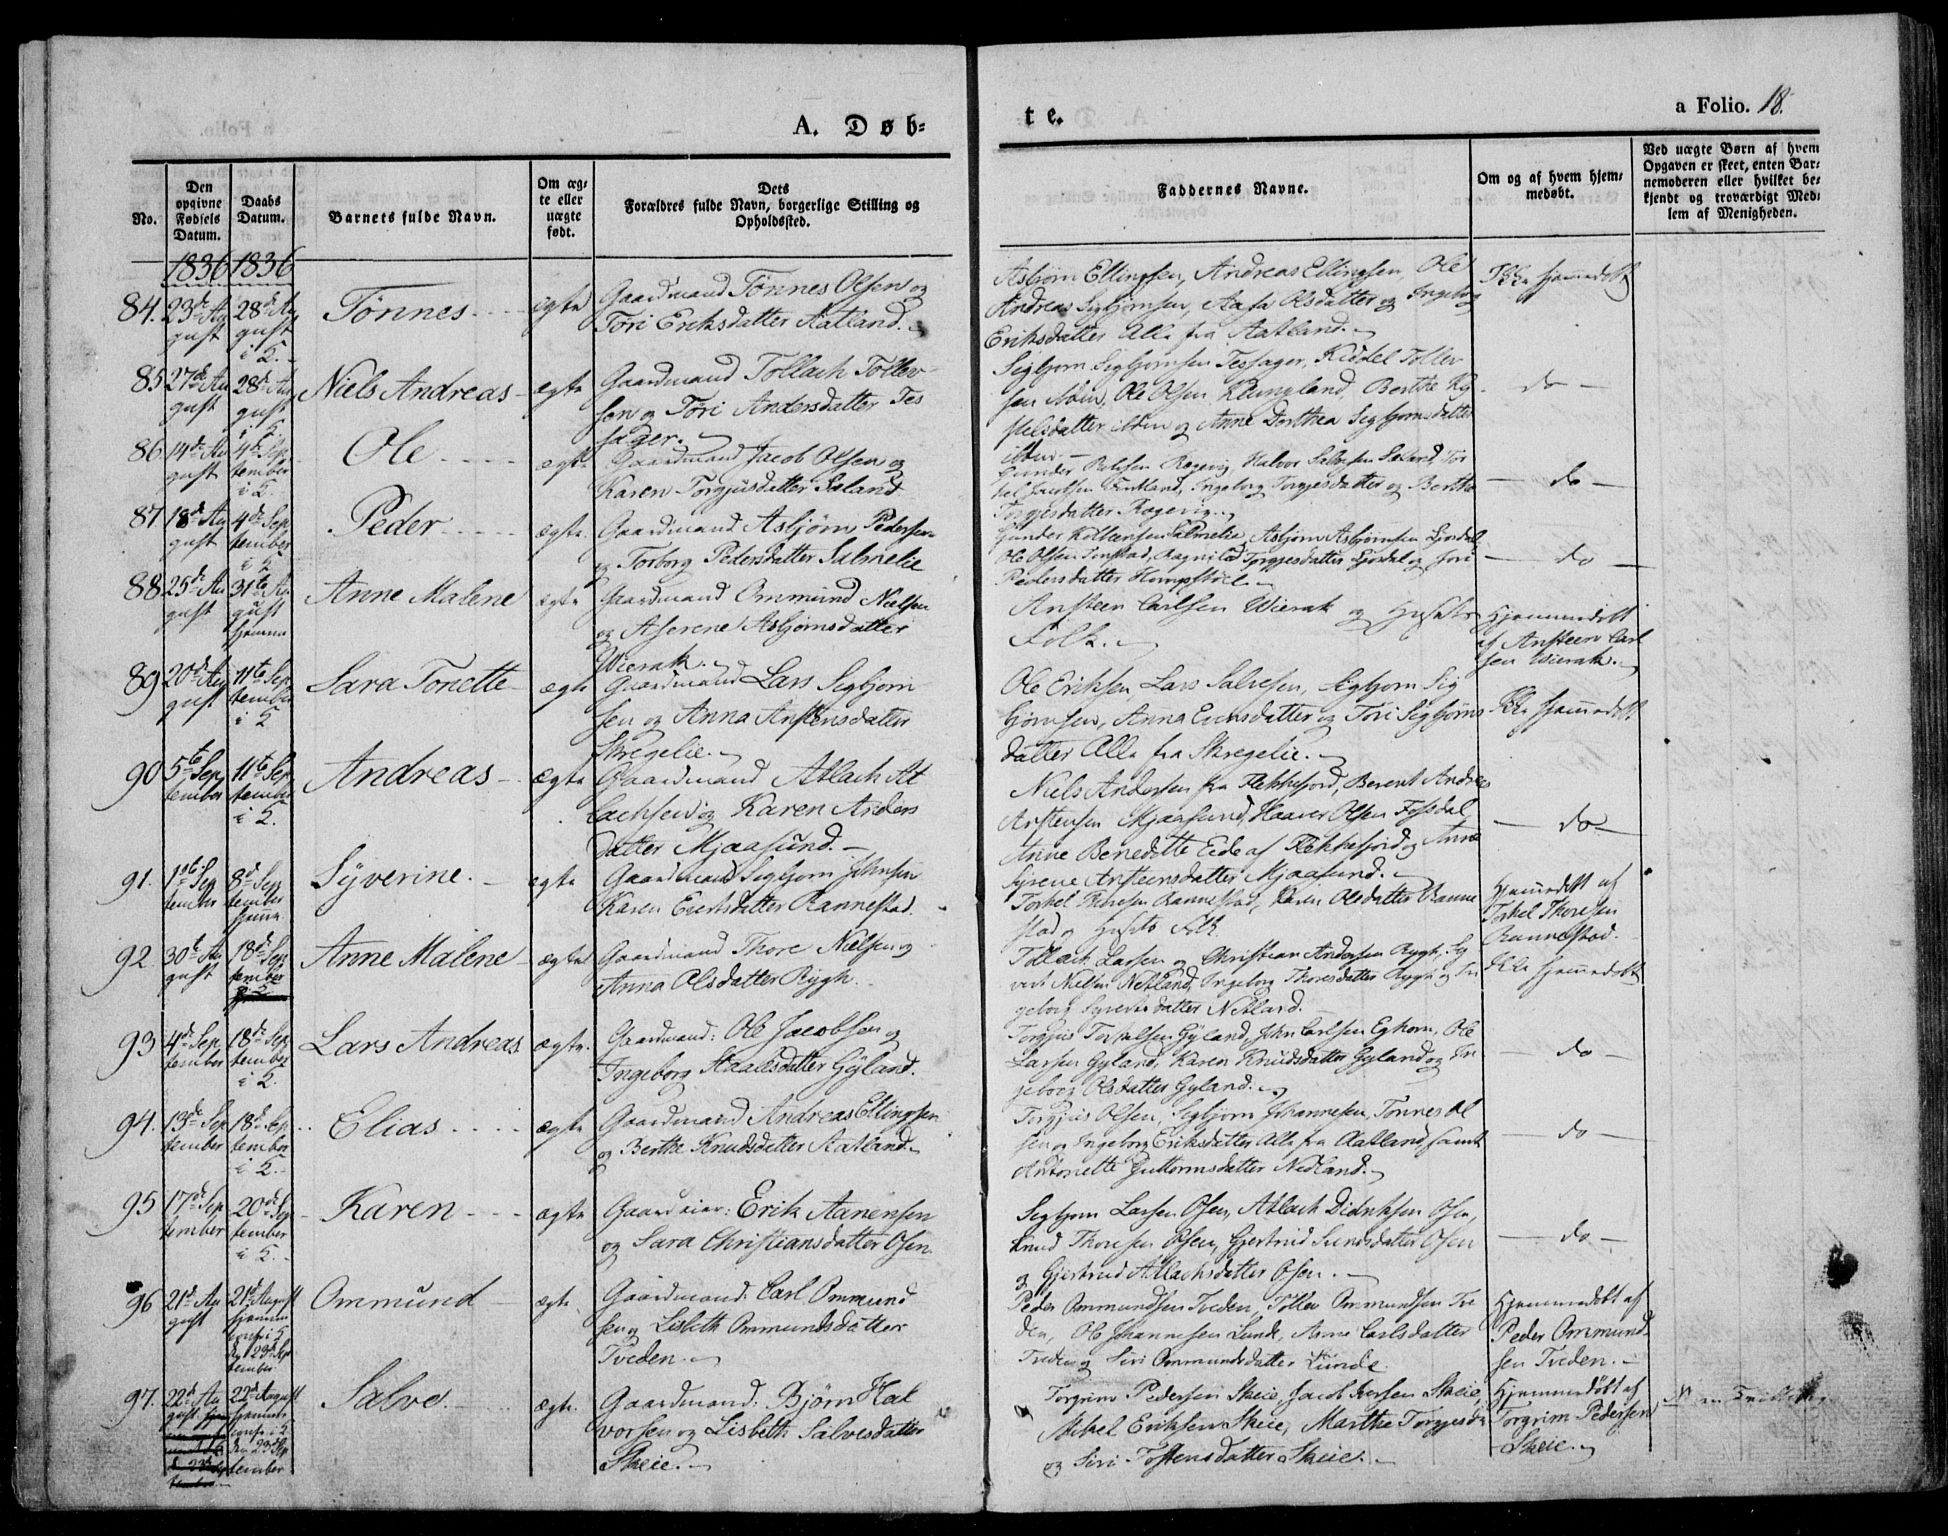 A. Døb-
te.
a Folio. 18.
No.
Den opgivne Fødsels Datum.
Daabs Datum.
Barnets fulde Navn.
Om ægte eller uægte født.
Dets Forældres fulde Navn, borgerlige Stilling og Opholdssted.
Faddernes Navne.
Om og af hvem hjemmedøbt.
Ved uægte Børn af hvem Opgaven er skeet, enten Barnemoderen eller hvilket bekjendt og troværdigt Medlem af Menigheden.
1836 1836
84. 23de Au
gust
28de Au
gust
i K.
Tønnes
ægte
Gaardmand Tønnes Olsen og
Tøri Eriksdatter Aatland.
Asbjørn Ellingsen, Andreas Ellingsen, Ole
Andreas Sigbjørnsen, Aasa Olsdatter og Ingeborg
Eriksdatter Alle fra Aatland.
Ikke hjemmedøbt
85 27de Au
gust
28de Au
gust
i K.
Niels Andreas
ægte
Gaardmand Tollach Tollev
sen og Tøri Andersdatter Tes
sager.
Sigbjørn Sigbjørnsen Tessager, Kiddel Tollev
sen ibden, Ole Olsen Klungland, Berthe
ibden og Anne Dorthea Sigbjørnsdatter
ibden
do
86 14de Au
gust
4de Sep
tember
i K.
Ole
ægte
Gaardmand Jacob Olsen og
Karen Torgjusdatter Saland
Gunder Rogevig, Halvor Salvesen Saland, Tor
kel Jacobsen Ingeborg Torgjesdatter og Berthe
Torgjesdatter Rogevig.
do
87 18de Au
gust
4de Sep
tember
i K
Peder
ægte
Gaardmand Asbjørn Pedersen
og Torborg Pedersdatter Salmelie
Gunder Salmelie, Asbjørn Asbjørnsen
Ole Olsen Ragnild Torgjesdatter og Tori
Pedersdatter
do
88 25de Au
gust
31te Au
gust
hjemme
Anne Malene
ægte
Gaardmand Ommund Nielsen
og Aserene Asbjørnsdatter
Wierak.
Ansteen Carlsen Wierak og Husets
Folk.
Hjemmedøbt
af Ansteen Carl
sen Wierak.
89 20de Au
gust
11te Sep
tember
i K
Sara Tonette
ægte
Gaardmand Lars Sigbjørn
sen og Anna Anstensdatter
Skregelie.
Ole Eriksen, Lars Salvesen, Sigbjørn Sig
bjørnsen, Anna Eriksdatter og Tori Sigbjørns
datter Alle fra Skregelie.
Ikke hjemmedøbt
90 5te Sep
tember
11te Sep
tember
i K.
Andreas
ægte
Gaardmand Atlach At
lachsen og Karen Anders
datter Mjaasund.
Niels Andersen fra Flekkefjord, Berent Andreas
Anstensen Mjaasund, Haaver Olsen Fossdal
Anne Beneditte Eide af Flekkefjord og Anne
Syrene Ansteensdatter Mjaasund.
do
91. 1ste Sep
tember
8de Sep
tember
hjemme
Syverine
ægte
Gaardmand Sigbjørn Johnsen
Karen Eriksdatter Rannestad.
Torkel Thoresen Rannestad, Karen Olsdatter Ranne
stad og Husets Folk
Hjemmedøbt af
Torkel Thoresen
Rannestad.
92 30te Au
gust
18de Sep
tember
Anne Malene
ægte
Gaardmand Thore Nielsen og
Anna Olsdatter Rygh.
Tollach Larsen og Christian Andersen Rygh, Sy
vert Nielsen Netland, Ingeborg Thoresdatter Rygh og In
geborg Syvertsdatter Netland.
Ikke hjemmedøbt
93 4de Sep
tember
18de Sep
tember
i K.
Lars Andreas
ægte
Gaardmand: Ole Jacobsen og
Ingeborg Staalesdatter Gyland.
Torgjus Gyland, John Carlsen Eghorn, Ole
Larsen Gyland, Karen Knudsdatter Gyland og In
geborg Olsdatter Gyland.
do
94. 13de Sep
tember
18de Sep
tember
i K.
Elias
ægte
Gaardmand Andreas Ellingsen
og Berthe Knudsdatter Aatland.
Torgjus Olsen, Sigbjørn Johannesen, Tønnes Ol
sen og Ingeborg Eriksdatter Alle fra Aatland, samt
Antonette Guttormsdatter Nedland.
do
95 17de Sep
tember
20de Sep
tember
i K.
Karen
ægte
Gaardeier: Erik Aanensen
og Sara Christiansdatter Osen
Sigbjørn Larsen Osen, Atlach Didriksen Osen,
Knud Thoresen Osen, Gjertrud Osen
og Gjertrud Atlachsdatter Osen.
do
96 21de Au
gust
21de August
hjemme
conf. i K
d. 23de Sep
tember
Ommund
ægte
Gaardmand: Carl Ommund
sen og Lisbeth Ommundsdatter
Tveden.
Peder Ommundsen Tveden, Tollev Ommundsen Tve
den, Ole Johannesen Lunde, Anne Carlsdatter
Tveden og Siri Ommundsdatter Lunde.
Hjemmedøbt af
Peder Ommund
sen Tveden.
97. 22de Au
gust
22de August
hjemme
conf. i K
den 23de Sep
tember
Salve
ægte
Gaardmand: Bjørn Hal
vorsen og Lisbeth Salvesdatter
Skeie.
Torgrim Pedersen Skeie, Jacob Skeie,
Mikel Eriksen Skeie, Marthe
og Siri Tostensdatter Skeie.
Hjemmedøbt af
Torgrim Pedersen
Skeie.